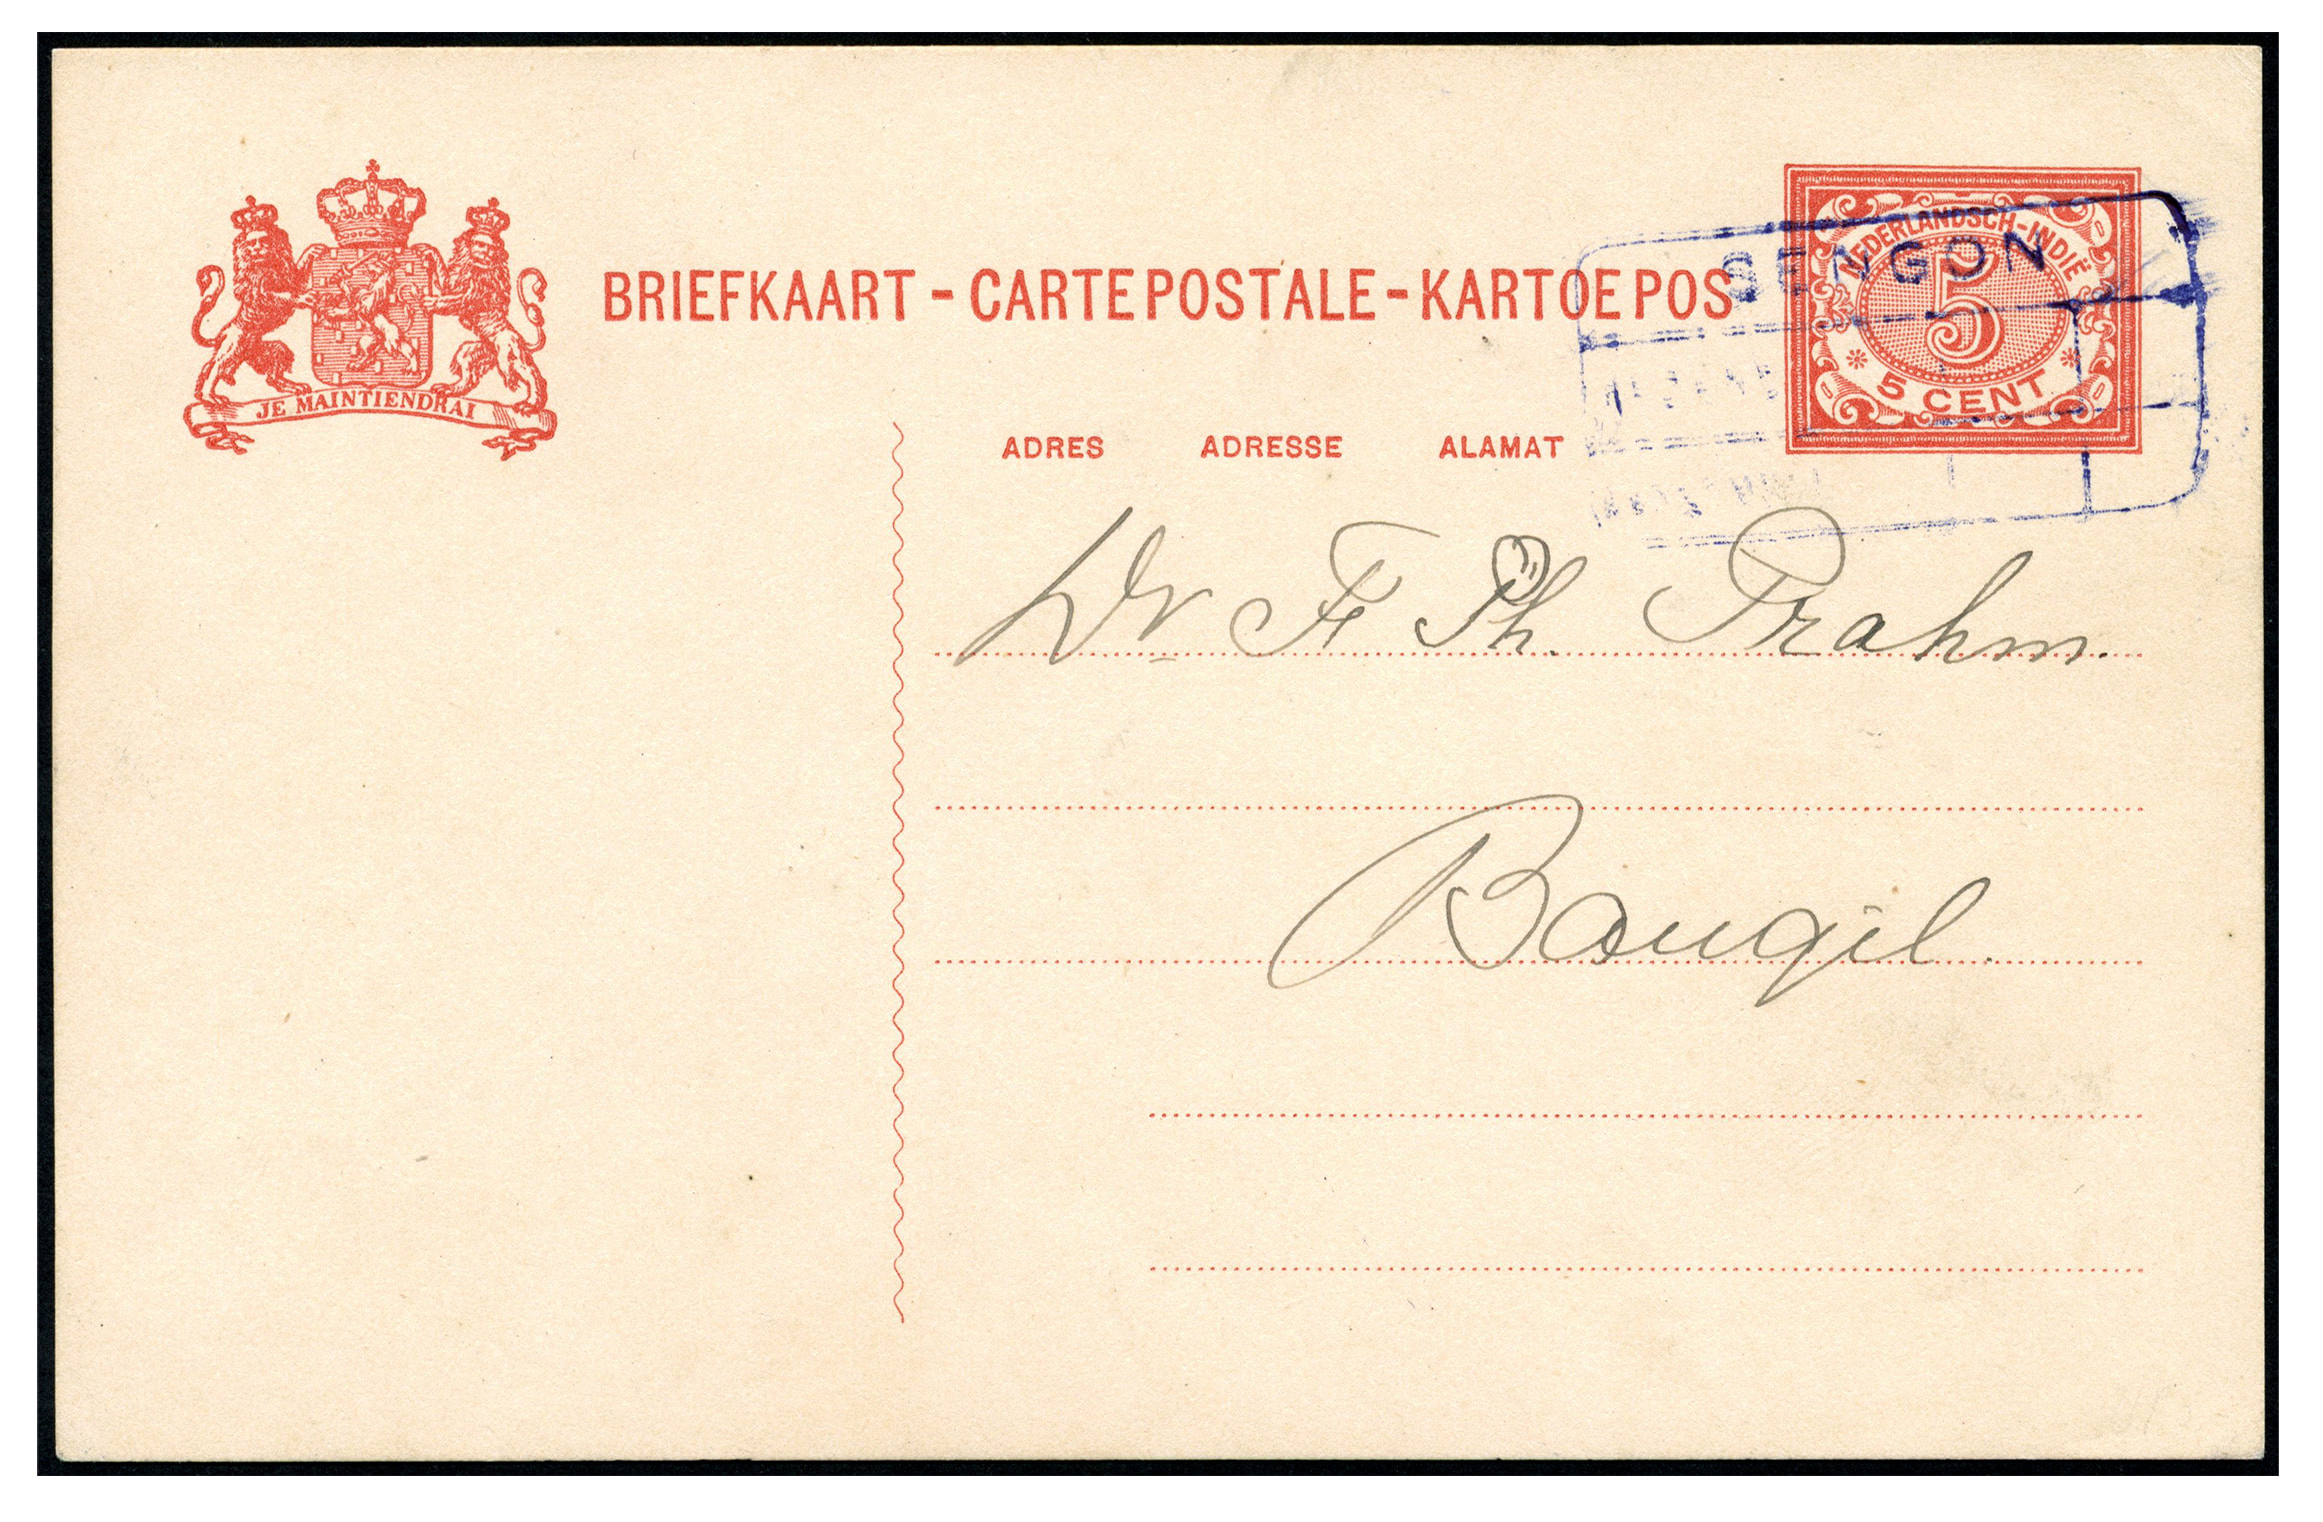 JE MAINTIENDRAI
BRIEFKAART - CARTE POSTALE - KARTOE POS
NEDERLANDSCH-INDIË
5
5 CENT
SENGON
ADRES ADRESSE ALAMAT
Dr F. Ph. Prahm.
Bangil.